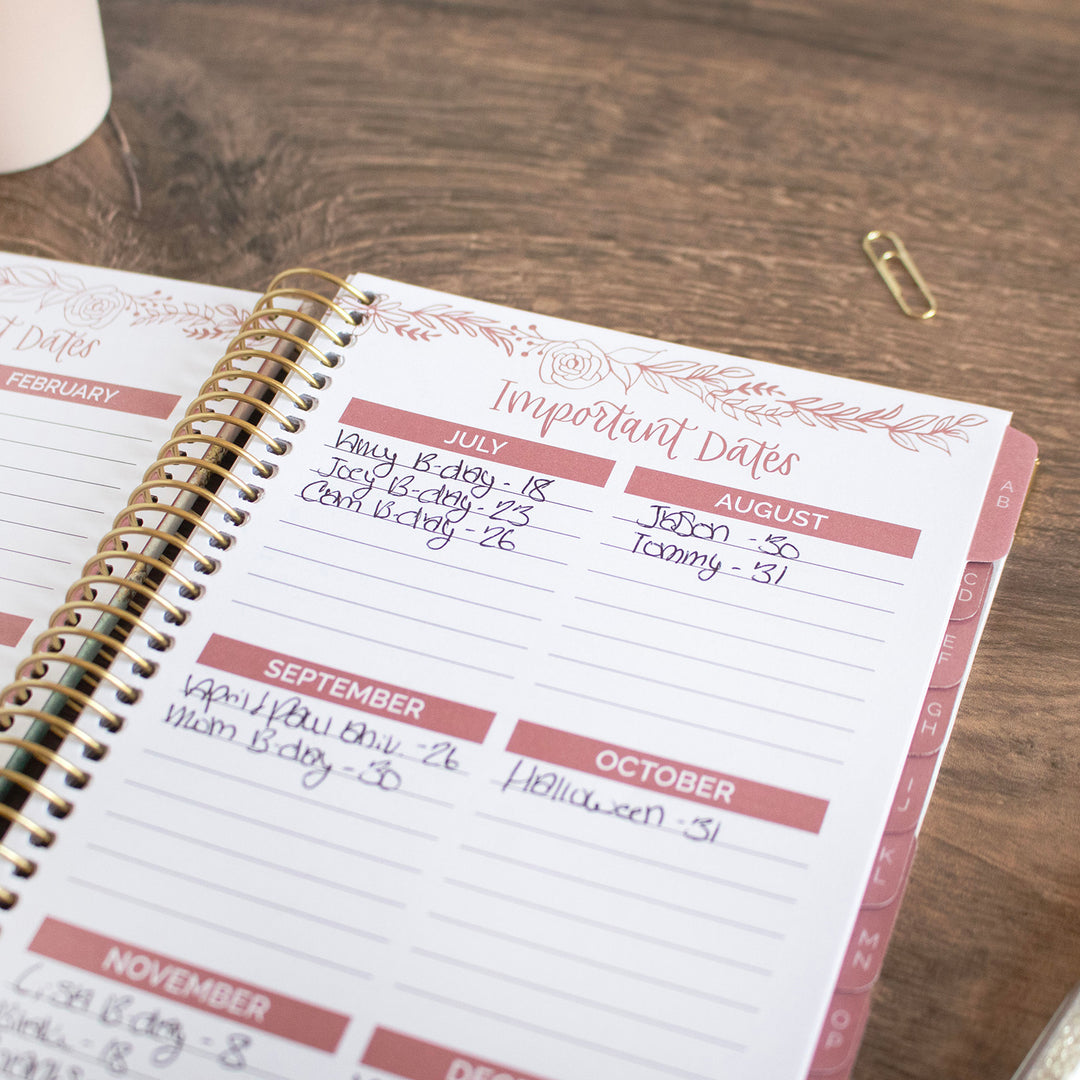 t Dates
FEBRUARY
Important Dates
JULY
Amy B-day - 18
Joey B-day - 23
Cam B-day - 26
AUGUST
Jason - 30
Tommy - 31
SEPTEMBER
April & Paul Aniv. - 26
Mom B-day - 30
OCTOBER
Halloween - 31
NOVEMBER
Lisa B-day - 8
- 18
DEC
A
B
C
D
E
F
G
H
I
J
K
L
M
N
O
P